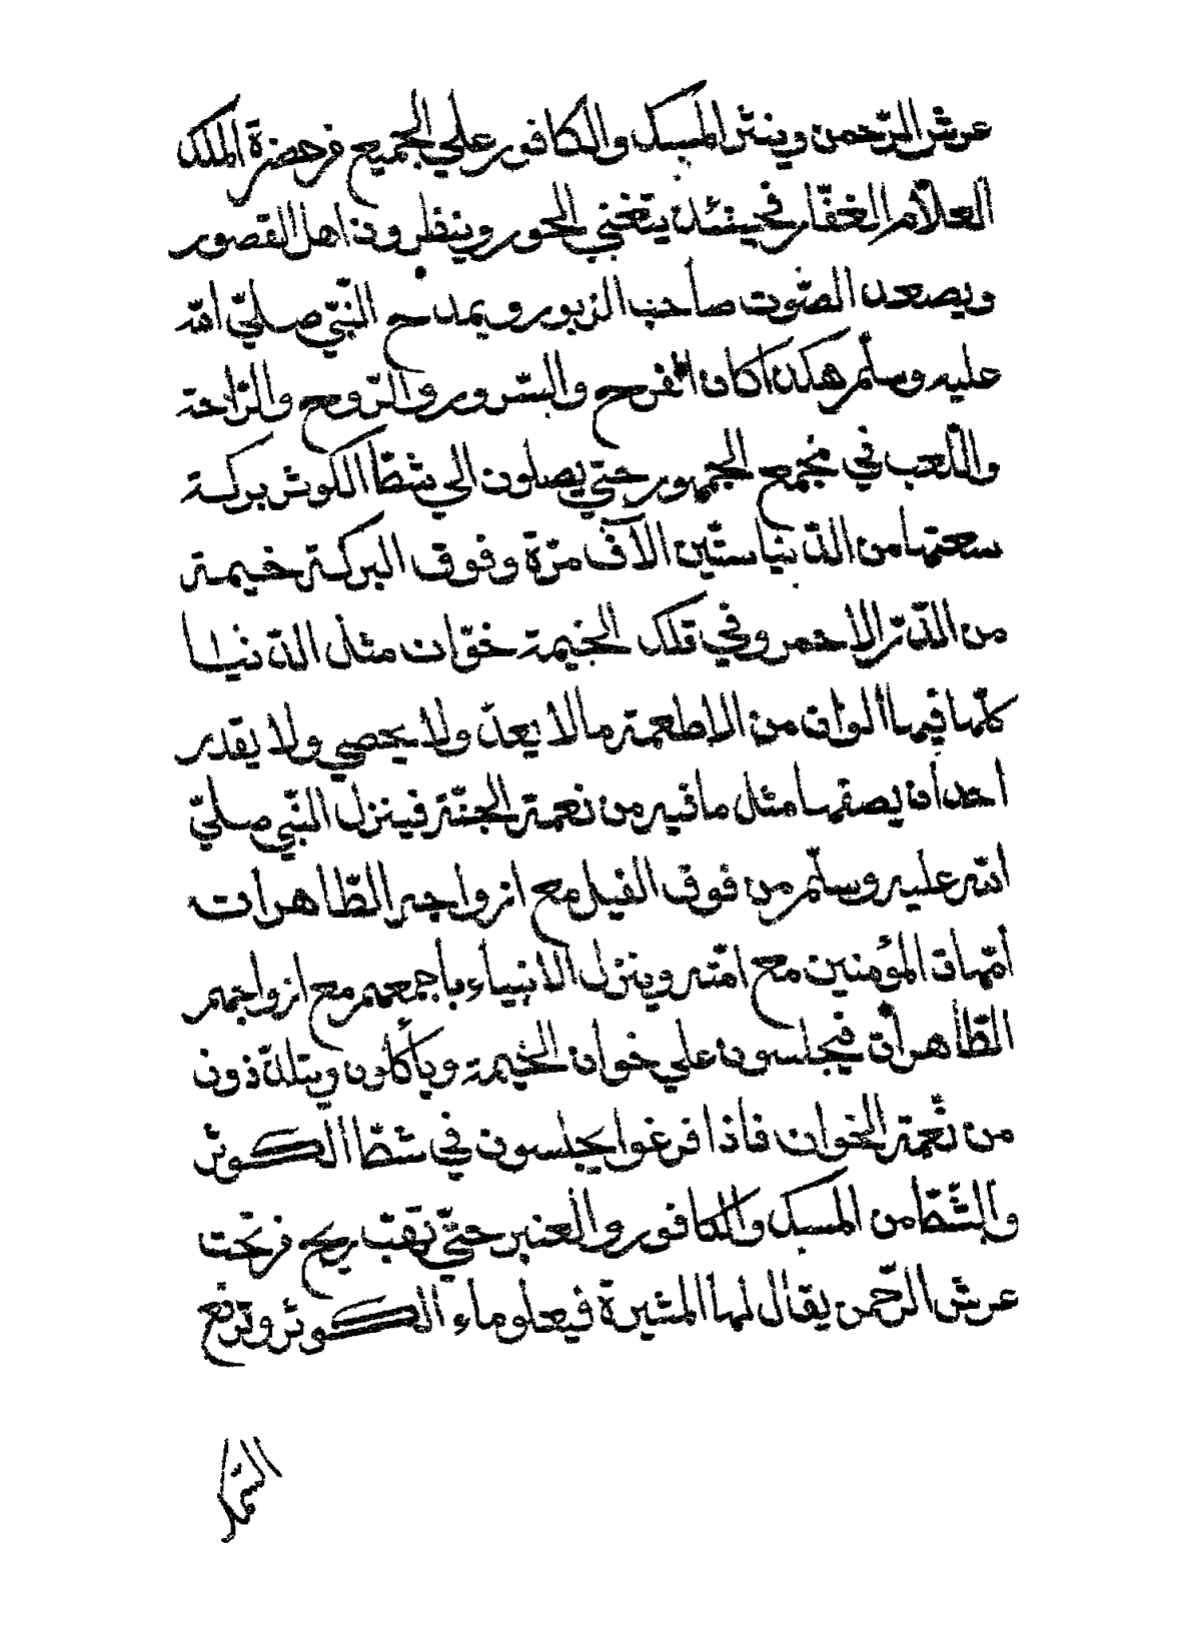 عرش الرّحمن وينثر المسك والكافور علي الجميع في حضرة الملك
العلّام الغفّار فحينئذ يتغني الحور وينظرون اهل القصور
ويصعد الصّوت صاحب الزبور ويمدح النّبّي صليّ الله
عليه وسلّم هكذا كان الفرح والسّرور والرّوح والرّاحة
واللعب في مجمع الجمهور حتي يصلون الي شطّ الكوثر بركة
سعتها من الدّنيا ستّين الآف مرّة وفوق البركة خيمة
من الدّرّ الاحمر وفي تلك الخيمة خوّان مثل الدّنيا
كلّها فيها الوان من الاطعمة ما لا يعدّ ولا يحصي ولا يقدر
احد ان يصفها مثل ما فيه من نعمة الجنّة فينزل النّبّي صليّ
الله عليه وسلّم من فوق الفيل مع ازواجه الطّاهرات
امّهات المؤمنين مع امّته وينزل الانبياء باجمعهم مع ازواجهم
الطّاهرات فيجلسون علي خوان الخيمة وياكلون ويتلذّذون
من نعمة الخوان فاذا فرغوا يجلسون في شطّ الكوثر
والشّطّ من المسك والكافور والعنبر حتّي تهبّ ريح من تحت
عرش الرّحمن يقال لها المثيرة فيعلو ماء الكوثر وترفع
السّمك